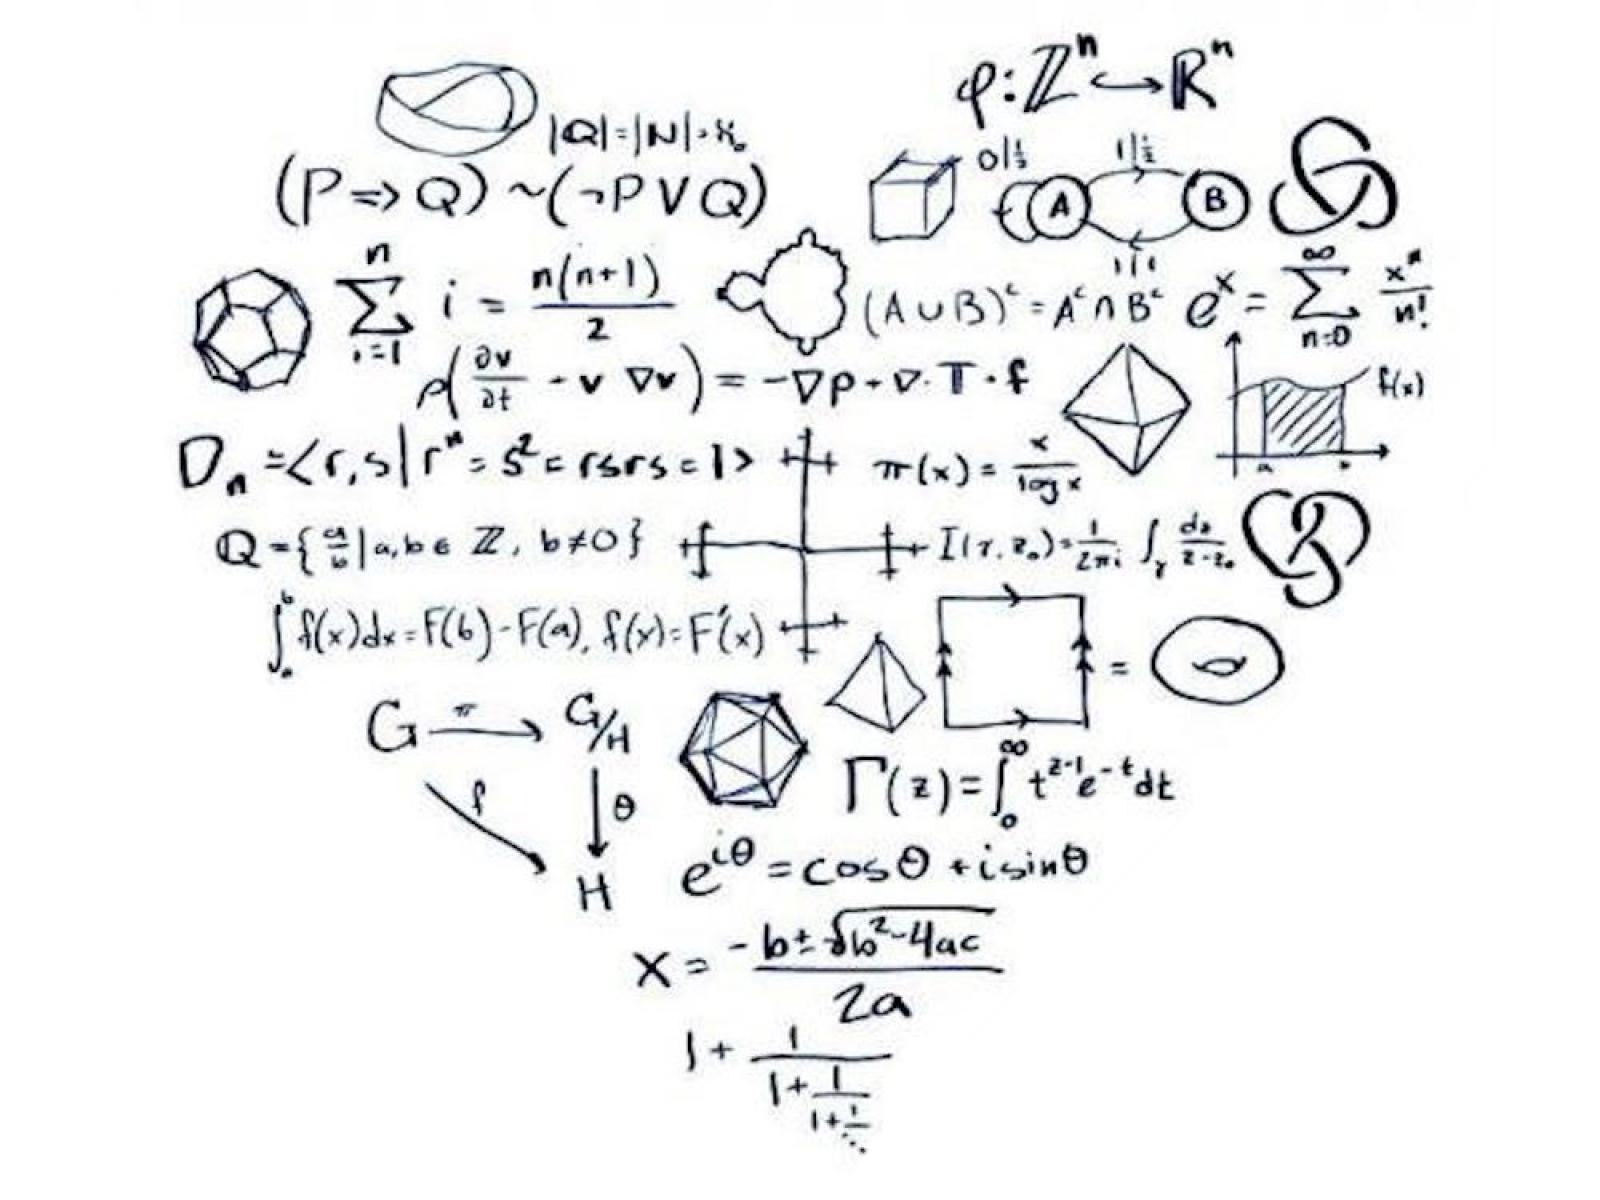 φ: ℤⁿ ↪ ℝⁿ
|Q| = |N| = ℵ₀
(P ⇒ Q) ~ (¬P ∨ Q)
0|½ 1|½
A B
1|1
n
∑ i = n(n+1)/2
i=1
(A ∪ B)ᶜ = Aᶜ ∩ Bᶜ
∞
eˣ = ∑ xⁿ/n!
n=0
ρ(∂v/∂t - v ∇v) = -∇p + ∇·T · f
f(x)
a b
Dₙ = <r,s | rⁿ = s² = rsrs = 1>
π(x) = x/log x
Q = { a/b | a,b ∈ ℤ, b≠0 }
I(γ, z₀) = 1/2πi ∫_γ dz/z-z₀
∫ₐᵇ f(x)dx = F(b) - F(a), f(x) = F'(x)
=
G π G/H
f θ
H
Γ(z) = ∫₀^∞ t^(z-1) e^(-t) dt
e^(iθ) = cosθ + i sinθ
x = -b ± √b²-4ac / 2a
1 + 1/1 + 1/1 + 1/⋱